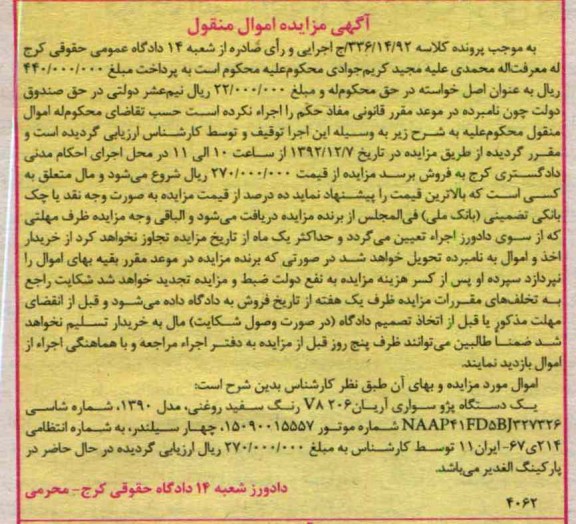 آگهی مزایده اموال منقول
به موجب پرونده کلاسه ۳۳۶/۱۴/۹۲/ج اجرایی و رأی صادره از شعبه ۱۴ دادگاه عمومی حقوقی کرج
له معرفت‌اله محمدی علیه مجید کریم‌جوادی محکوم‌علیه محکوم است به پرداخت مبلغ ۴۴۰/۰۰۰/۰۰۰
ریال به عنوان اصل خواسته در حق محکوم‌له و مبلغ ۲۲/۰۰۰/۰۰۰ ریال نیم‌عشر دولتی در حق صندوق
دولت چون نامبرده در موعد مقرر قانونی مفاد حکم را اجراء نکرده است حسب تقاضای محکوم‌له اموال
منقول محکوم‌علیه به شرح زیر به وسیله این اجرا توقیف و توسط کارشناس ارزیابی گردیده است و
مقرر گردیده از طریق مزایده در تاریخ ۱۳۹۲/۱۲/۷ از ساعت ۱۰ الی ۱۱ در محل اجرای احکام مدنی
دادگستری کرج به فروش برسد مزایده از قیمت ۲۷۰/۰۰۰/۰۰۰ ریال شروع می‌شود و مال متعلق به
کسی است که بالاترین قیمت را پیشنهاد نماید ده درصد از قیمت مزایده به صورت وجه نقد یا چک
بانکی تضمینی (بانک ملی) فی‌المجلس از برنده مزایده دریافت می‌شود و الباقی وجه مزایده ظرف مهلتی
که از سوی دادورز اجراء تعیین می‌گردد و حداکثر یک ماه از تاریخ مزایده تجاوز نخواهد کرد از خریدار
اخذ و اموال به نامبرده تحویل خواهد شد در صورتی که برنده مزایده در موعد مقرر بقیه بهای اموال را
نپردازد سپرده او پس از کسر هزینه مزایده به نفع دولت ضبط و مزایده تجدید خواهد شد شکایت راجع
به تخلف‌های مقررات مزایده ظرف یک هفته از تاریخ فروش به دادگاه داده می‌شود و قبل از انقضای
مهلت مذکور یا قبل از اتخاذ تصمیم دادگاه (در صورت وصول شکایت) مال به خریدار تسلیم نخواهد
شد ضمناً طالبین می‌توانند ظرف پنج روز قبل از مزایده به دفتر اجراء مراجعه و با هماهنگی اجراء از
اموال بازدید نمایند.
اموال مورد مزایده و بهای آن طبق نظر کارشناس بدین شرح است:
یک دستگاه پژو سواری آریان ۲۰۶ V۸ رنگ سفید روغنی، مدل ۱۳۹۰، شماره شاسی
NAAP۴۱FD۵BJ۳۲۷۳۲۶ شماره موتور ۱۵۰۹۰۰۱۵۵۵۷، چهار سیلندر، به شماره انتظامی
۲۱۴ی۶۷- ایران۱۱ توسط کارشناس به مبلغ ۲۷۰/۰۰۰/۰۰۰ ریال ارزیابی گردیده در حال حاضر در
پارکینگ الغدیر می‌باشد.
دادورز شعبه ۱۴ دادگاه حقوقی کرج- محرمی
۴۰۶۲